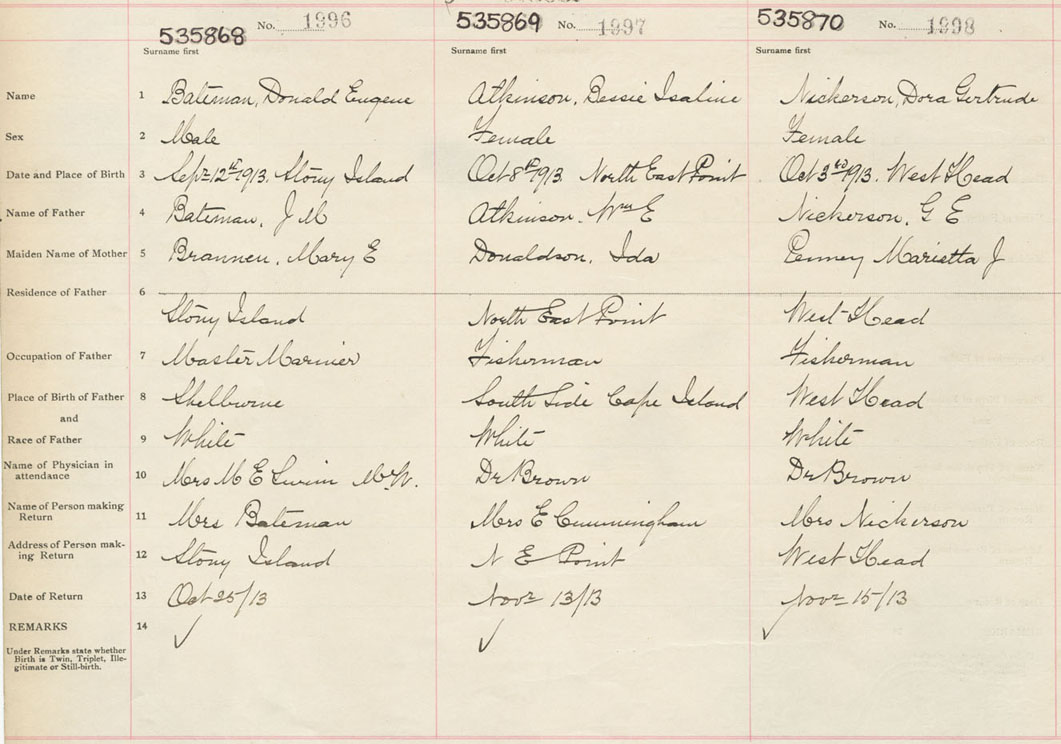 535868 No. 1996 535869 No. 1997 535870 No. 1998
Surname first Surname first Surname first
Name 1 Bateman, Donald Eugene Atkinson, Bessie Isaline Nickerson, Dora Gertrude
Sex 2 Male Female Female
Date and Place of Birth 3 Sept 12th 1913. Stony Island Oct 8th 1913 North East Point Oct 3rd 1913. West Head
Name of Father 4 Bateman, J M Atkinson. Wm E Nickerson, G E
Maiden Name of Mother 5 Brannen, Mary E Donaldson, Ida Penney Marietta J
Residence of Father 6
Stony Island North East Point West Head
Occupation of Father 7 Master Mariner Fisherman Fisherman
Place of Birth of Father 8 Shelburne South Side Cape Island West Head
and
Race of Father 9 White White White
Name of Physician in
attendance 10 Mrs M E Dr Brown Dr Brown
Name of Person making
Return 11 Mrs Bateman Mrs E Cunningham Mrs Nickerson
Address of Person mak-
ing Return 12 Stony Island N E Point West Head
Date of Return 13 Oct 25/13 Novr 13/13 Novr 15/13
REMARKS 14 ✓ ✓ ✓
Under Remarks state whether
Birth is Twin, Triplet, Ille-
gitimate or Still-birth.